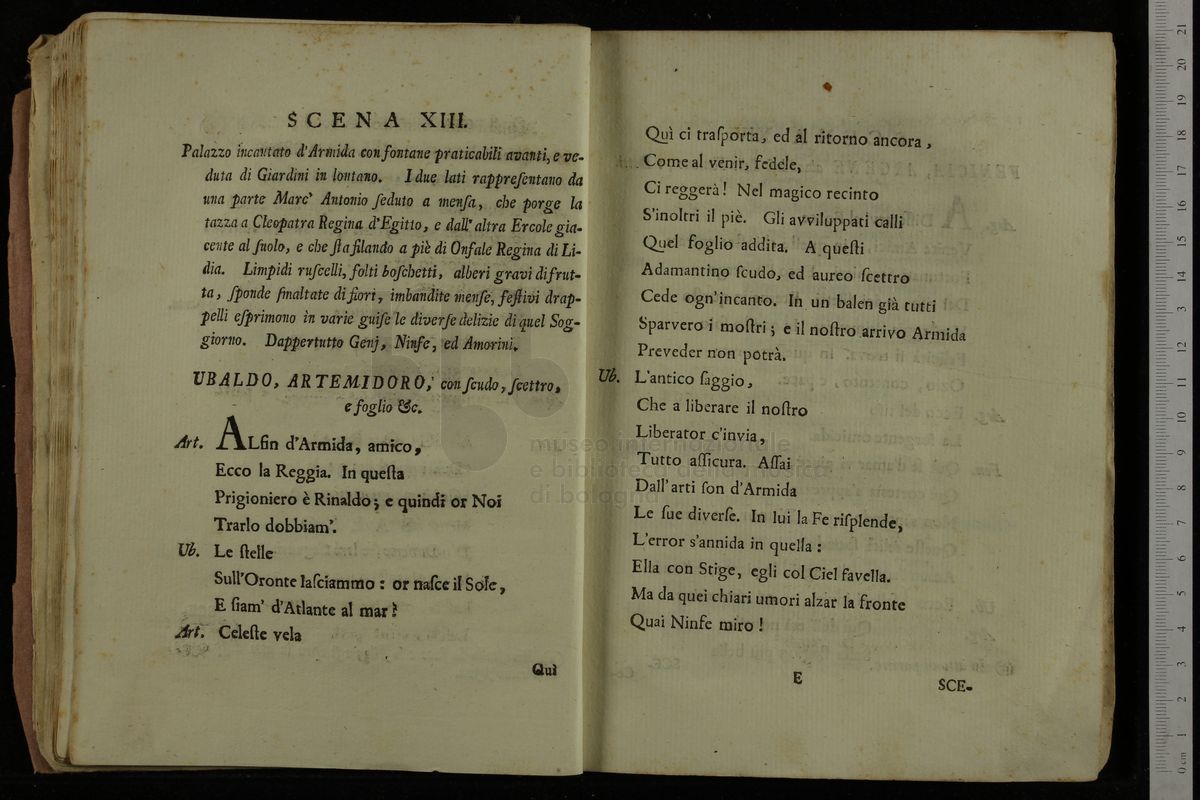 SCENA XIII.
Palazzo incantato d'Armida con fontane praticabili avanti, e ve-
duta di Giardini in lontano. I due lati rappreſentano da
una parte Marc' Antonio ſeduto a menſa, che porge la
tazza a Cleopatra Regina d'Egitto, e dall' altra Ercole gia-
cente al ſuolo, e che ſta filando a piè di Onfale Regina di Li-
dia. Limpidi ruſcelli, folti boſchetti, alberi gravi di frut-
ta, ſponde ſmaltate di fiori, imbandite menſe, feſtivi drap-
pelli eſprimono in varie guiſe le diverſe delizie di quel Sog-
giorno. Dappertutto Genj, Ninfe, ed Amorini.
UBALDO, ARTEMIDORO, con ſcudo, ſcettro,
e foglio &c.
Art. ALfin d'Armida, amico,
Ecco la Reggia. In queſta
Prigioniero è Rinaldo; e quindi or Noi
Trarlo dobbiam'.
Ub. Le ſtelle
Sull'Oronte laſciammo : or naſce il Sole,
E ſiam' d'Atlante al mar?
Art. Celeſte vela
Quì
Quì ci traſporta, ed al ritorno ancora,
Come al venir, fedele,
Ci reggerà! Nel magico recinto
S'inoltri il piè. Gli avviluppati calli
Quel foglio addita. A queſti
Adamantino ſcudo, ed aureo ſcettro
Cede ogn'incanto. In un balen già tutti
Sparvero i moſtri; e il noſtro arrivo Armida
Preveder non potrà.
Ub. L'antico ſaggio,
Che a liberare il noſtro
Liberator c'invia,
Tutto aſſicura. Aſſai
Dall'arti ſon d'Armida
Le ſue diverſe. In lui la Fe riſplende,
L'error s'annida in quella :
Ella con Stige, egli col Ciel favella.
Ma da quei chiari umori alzar la fronte
Quai Ninfe miro!
E
SCE-
museo internazionale
e biblioteca della musica
di bologna
0 cm 1 2 3 4 5 6 7 8 9 10 11 12 13 14 15 16 17 18 19 20 21